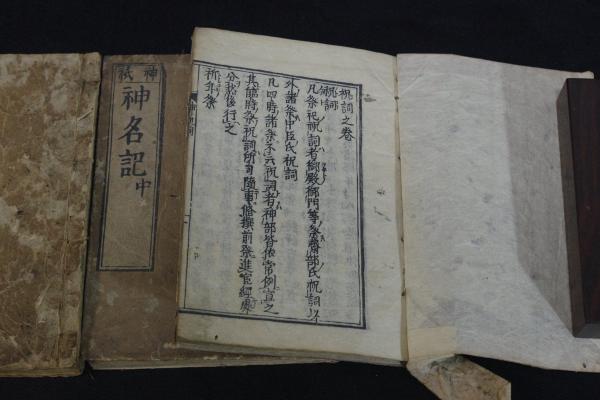 祝詞之巻
祝詞
凡祭祀祝詞者御殿御門等祭齋部氏祝詞以
外諸祭中臣氏祝詞
凡四時諸祭不云祝詞者神部皆依常例宣之
其臨時祭祝詞所司隨事脩撰前祭進官經處
分然後行之
祈年祭
神祇
神名記
中